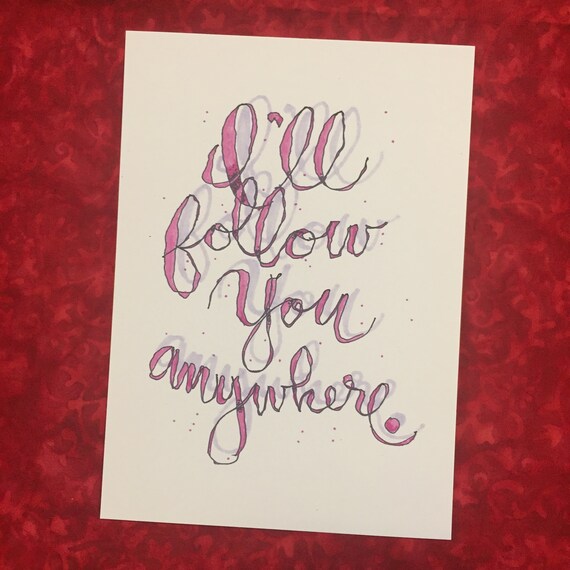 I'll
follow
you
anywhere.